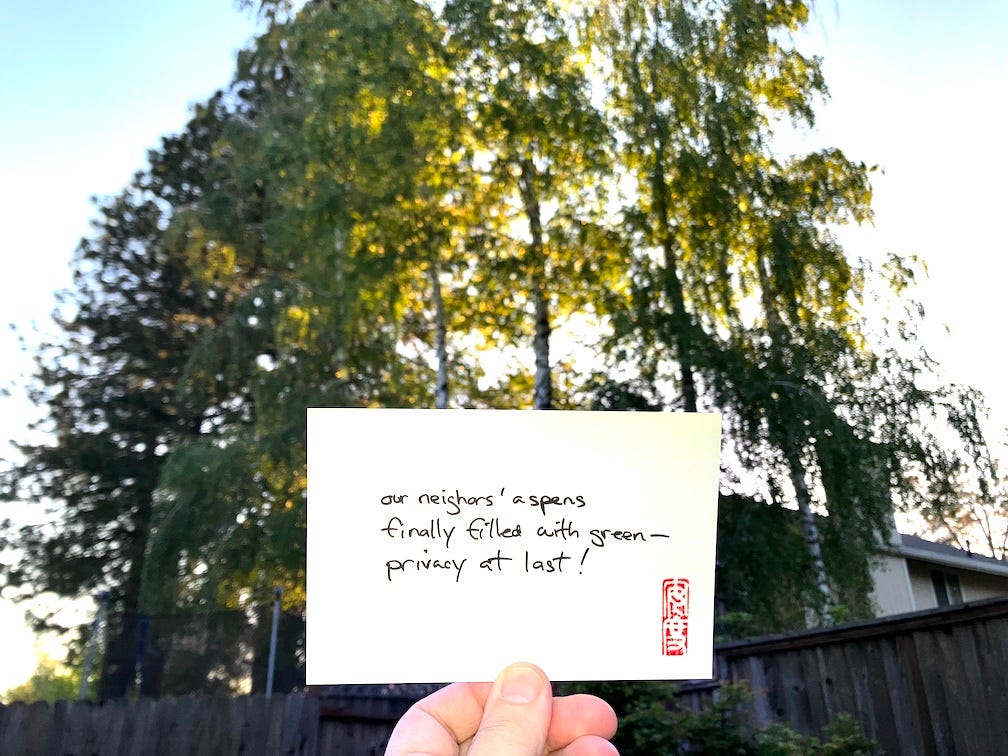 our neighors' aspens
finally filled with green—
privacy at last!